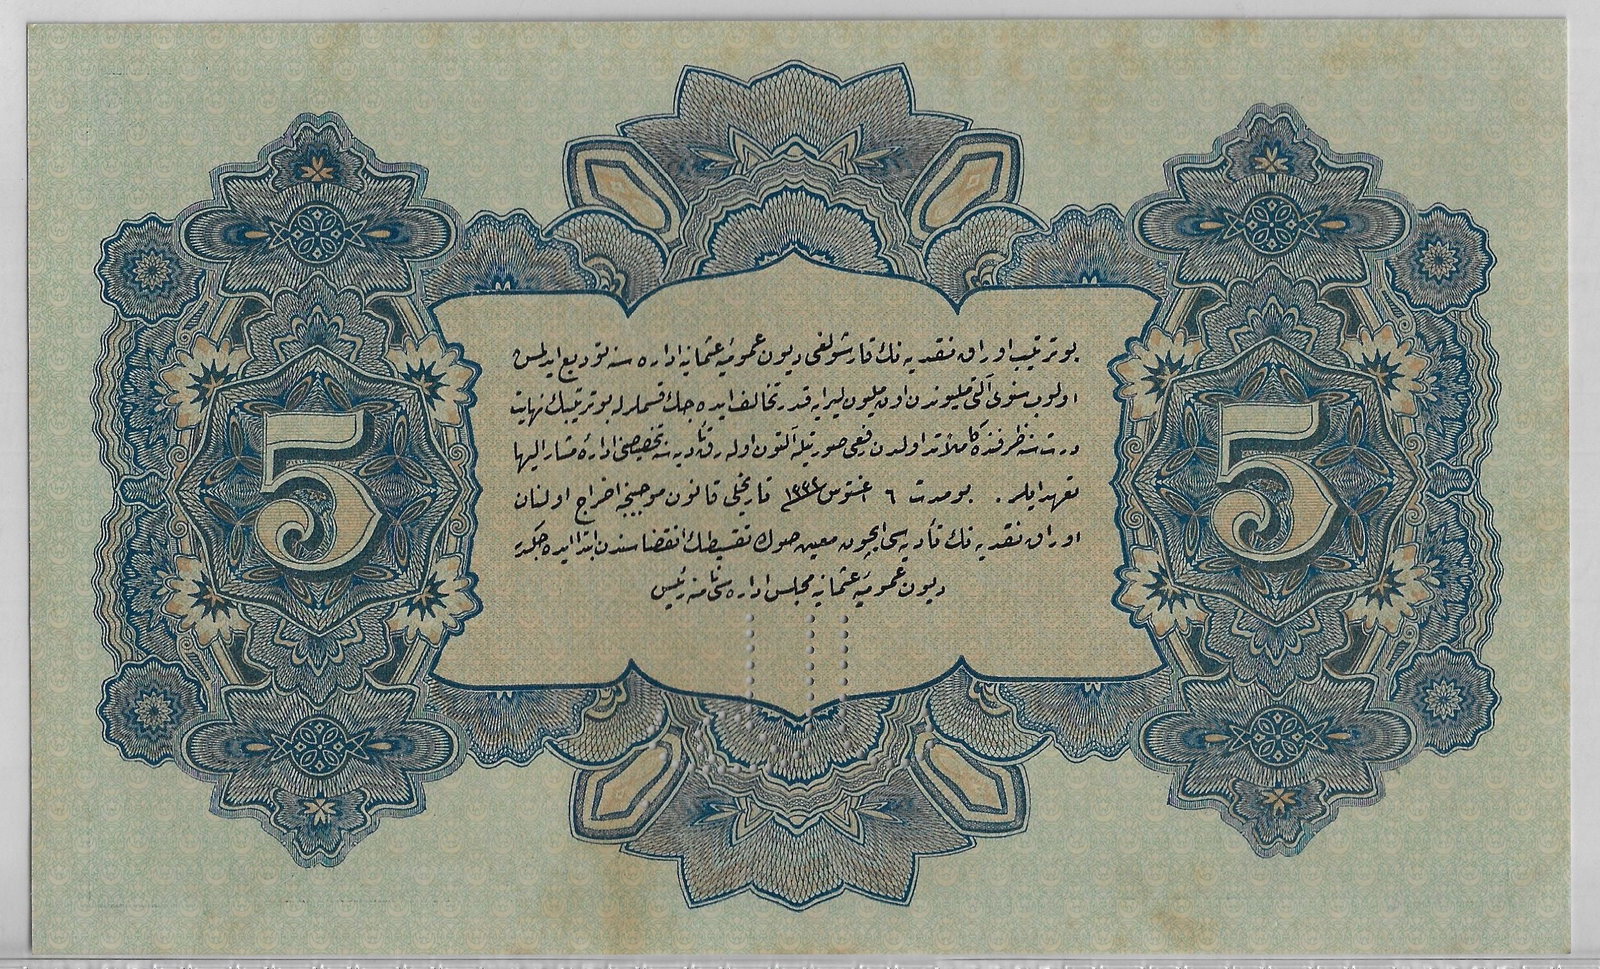 بو ترتیب اوراق نقدیه نك قارشولغی دیون عمومیهٔ عثمانیه اداره سنه تودیع ایدلمش
اولوب سنوی آلتی ملیوندن اون ملیون لیرایه قدر تخالف ایده جك قسملرله بو ترتیبك نهایت
درت سنه ظرفنده كاملاً تداولدن رفعی صورتیله آلتون اوله رق تأدیه سنه تخصیصنی ادارهٔ مشار الیها
تعهد ایلر . بو مدت ٦ اغستوس ١٣٣٢ تاریخلی قانون موجبنجه اخراج اولنان
اوراق نقدیه نك تأدیه سی ایچون معین صوك تقسیطك انقضاسندن ابتدا ایده جكدر
دیون عمومیهٔ عثمانیه مجلس اداره سی نامنه رئیس
5 5